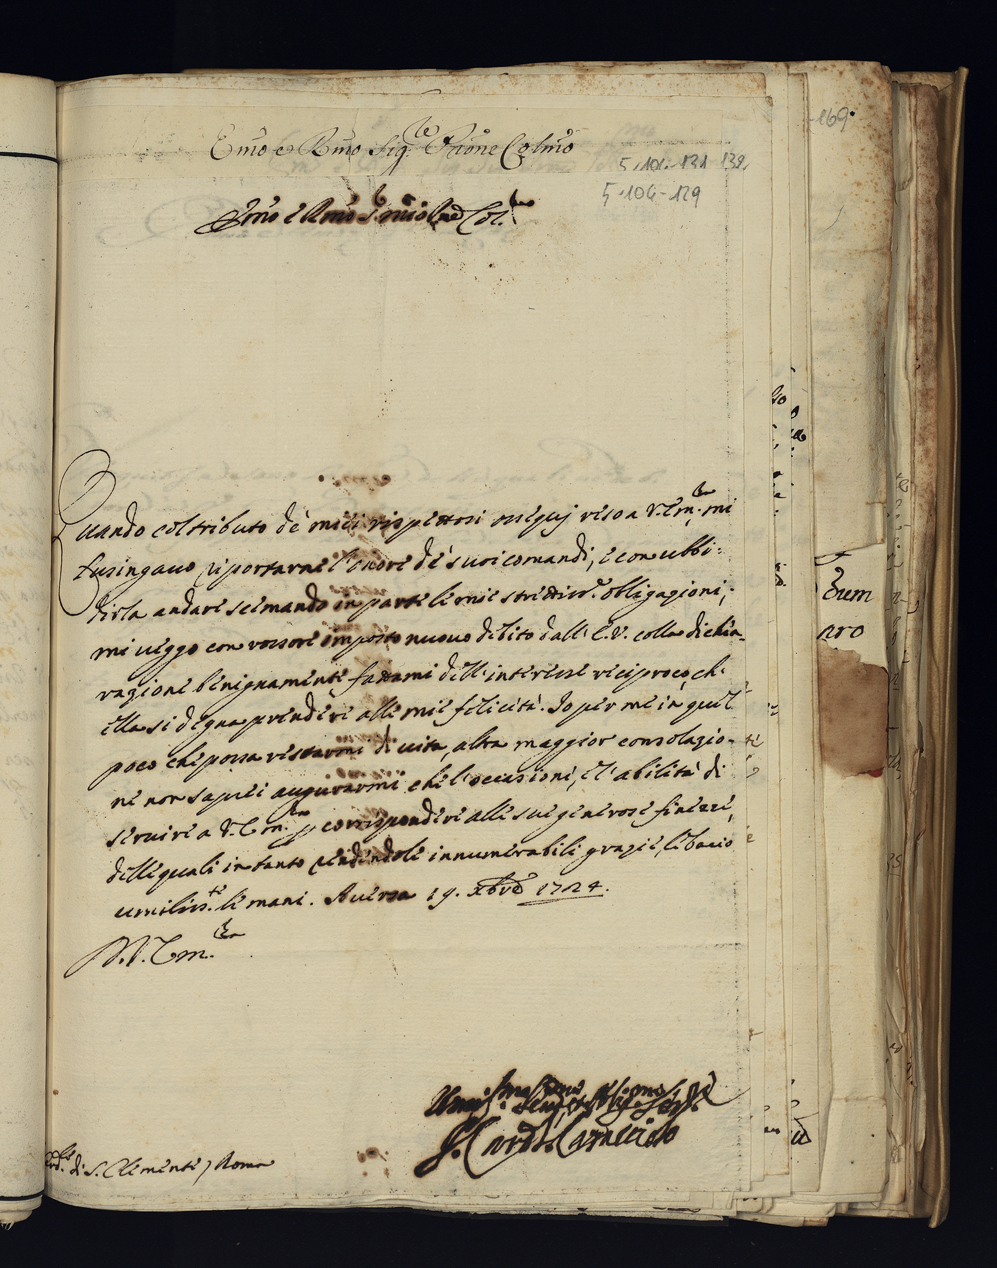 169
Emo e Rmo Sig.re Prone Colmo
5-104-131 132
5-104-129
Emo e Rmo S. mio Col.mo
Quando col tributo de miei rispettosi ossequj reso a V. Em.za mi
lusingavo riportarne l'onore de' suoi comandi, e con ubbi-
dirla andare scemando in parte le mie strettiss.e obligazioni,
mi veggo con rossore imposto nuovo debito dall'E.V. colla dichia-
razione benignamente fattami dell'interesse reciproco, ch'
ella si degna prendere alle mie felicità. Io per me in quel
poco che possa restarmi di vita, altra maggior consolazio-
ne non saprei augurarmi che l'occasioni, e l'abilità di
servire a V. Em.za p corrispondere alle sue generose finezze,
delle quali in tanto rendendole innumerabili grazie, le bacio
umiliss.te le mani. Aversa 19. Xbre 1724.
D. V. Em.za
Card.le Caracciolo
di S. Clemente / Roma